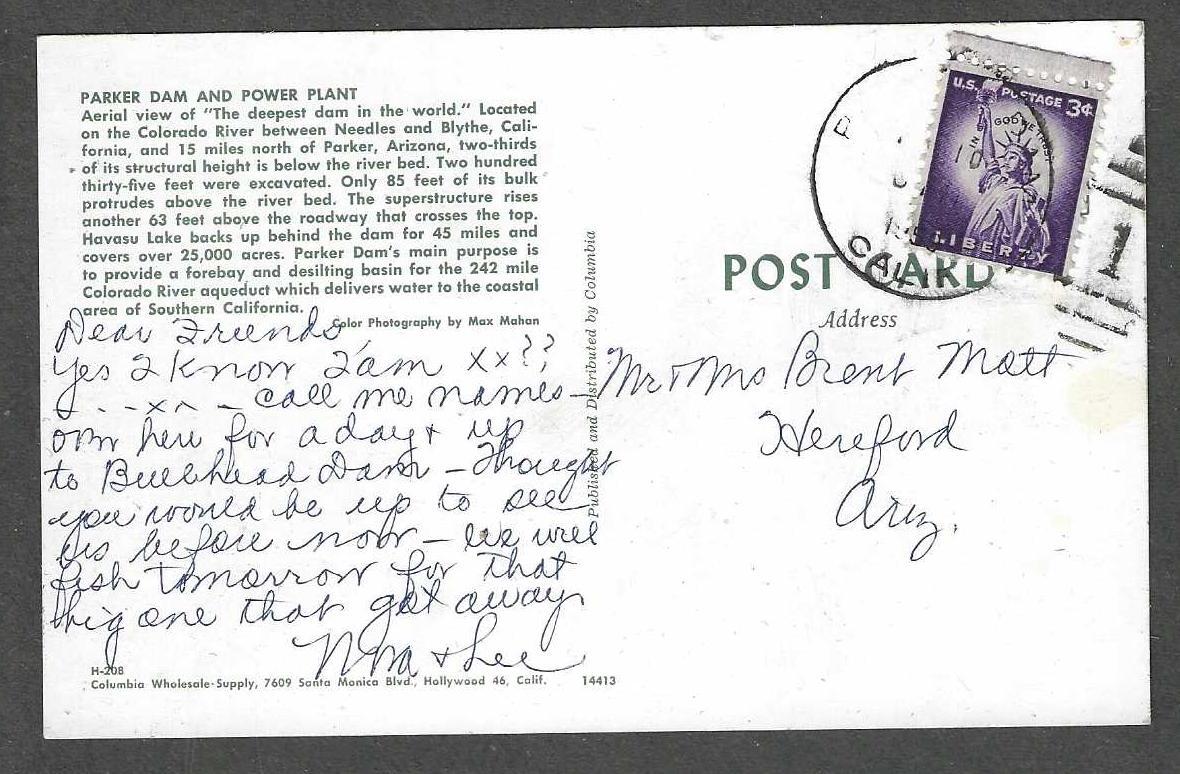 PARKER DAM AND POWER PLANT
Aerial view of "The deepest dam in the world." Located
on the Colorado River between Needles and Blythe, Cali-
fornia, and 15 miles north of Parker, Arizona, two-thirds
of its structural height is below the river bed. Two hundred
thirty-five feet were excavated. Only 85 feet of its bulk
protrudes above the river bed. The superstructure rises
another 63 feet above the roadway that crosses the top.
Havasu Lake backs up behind the dam for 45 miles and
covers over 25,000 acres. Parker Dam's main purpose is
to provide a forebay and desilting basin for the 242 mile
Colorado River aqueduct which delivers water to the coastal
area of Southern California.
Color Photography by Max Mahan
Dear Friends,
Yes I Know I am xx??
- - - xx - call me names -
here for a day & up
to Bullhead Dam - Thought
you would be up to see
us before now - We will
fish tomorrow for that
big one that got away
& Lee
H-208
Columbia Wholesale-Supply, 7609 Santa Monica Blvd., Hollywood 46, Calif.
14413
Published and Distributed by Columbia
U.S. POSTAGE 3¢
IN GOD WE TRUST
LIBERTY
CALIF
1
POST CARD
Address
Mr & Mrs Brent Matt
Hereford
Ariz.